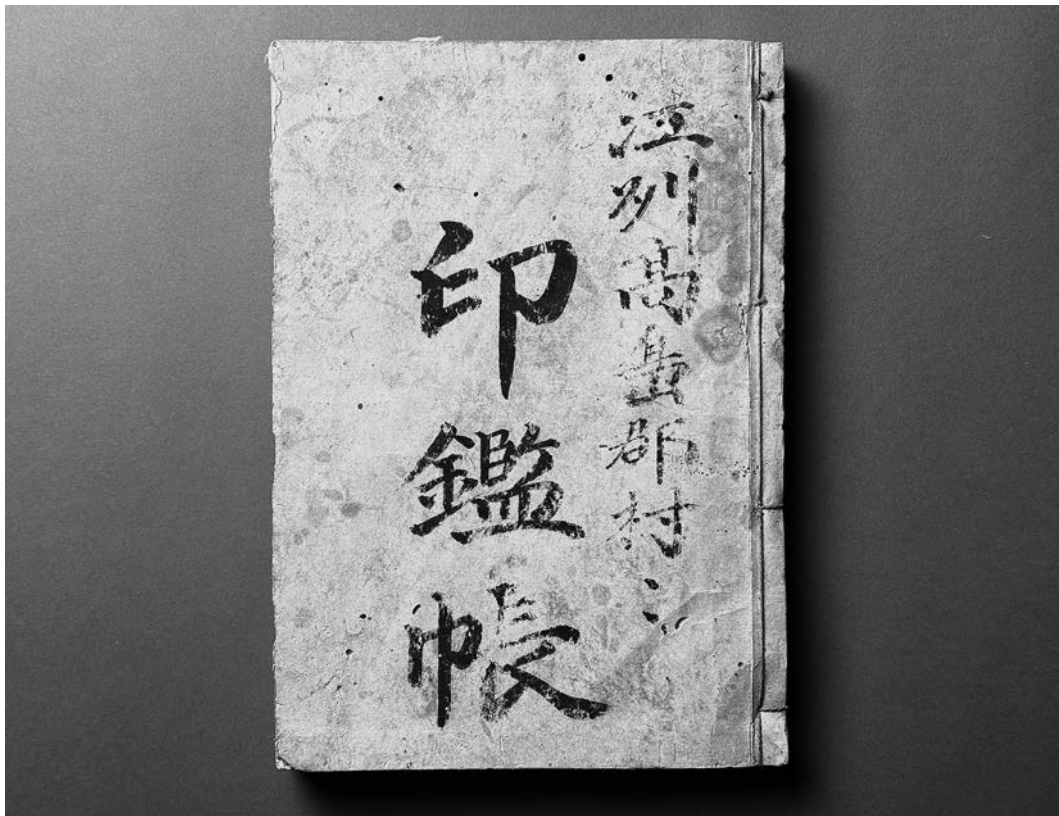 江州高島郡村々
印鑑帳